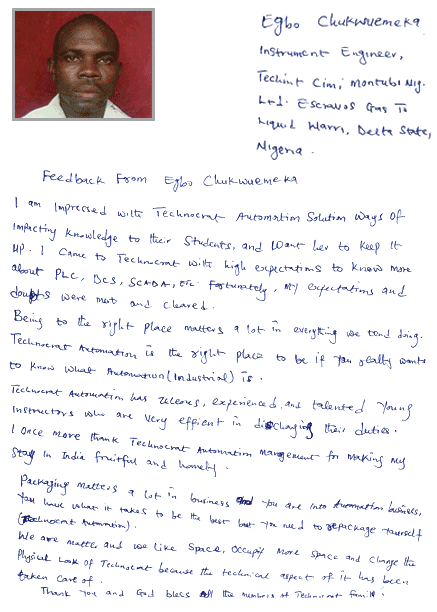 Egbo Chukwuemeka
Instrument Engineer,
Techint Cimi Montubi Nig.
Ltd. Escravos Gas To
Liquid Warri, Delta State,
Nigeria.
Feedback From Egbo Chukwuemeka
I am impressed with Technocrat Automation Solution Ways Of
Impacting Knowledge to their Students, and Want her to Keep It
up. I Came to Technocrat With high expectations to Know More
about PLC, DCS, SCADA, etc. Fortunately, My expectations and
doubts were met and cleared.
Being to the right place matters a lot in everything we tend doing.
Technocrat Automation is the right place to be if you really wants
to know what Automation (Industrial) is.
Technocrat Automation has zeleous, experienced, and talented young
Instructors who are very efficent in discharging their duties.
I Once more thank Technocrat Automation Management for Making My
Stay In India fruitful and homely.
Packaging matters a lot in business and you are into Automation business,
You have what it takes to be the best but you need to repackage yourself
(Technocrat Automation).
We are matter and we like Space, Occupy More Space and Change the
Physical Look Of Technocrat because the technical aspect of it has been
taken care of.
Thank You and God bless all the members of Technocrat family.